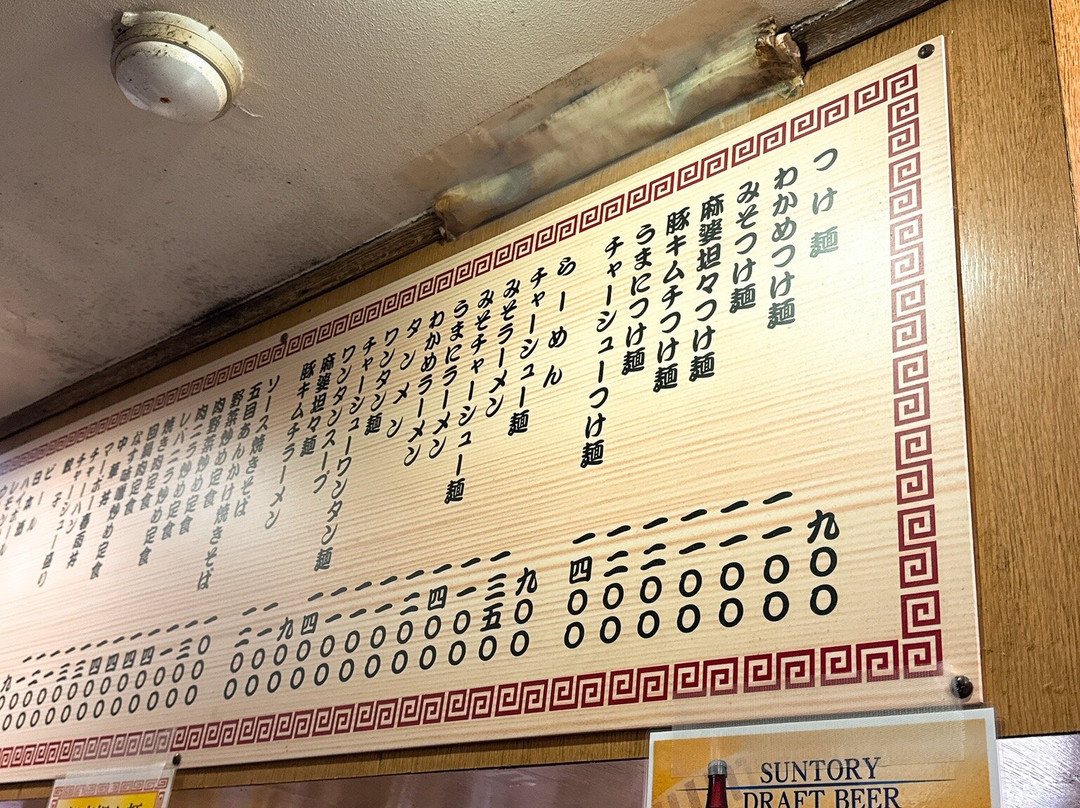 つけ麺 九〇〇
わかめつけ麺 一一〇〇
みそつけ麺 一一〇〇
麻婆坦々つけ麺 一一〇〇
豚キムチつけ麺 一二〇〇
うまにつけ麺 一二〇〇
チャーシューつけ麺 一四〇〇
らーめん 九〇〇
チャーシュー麺 一三五〇
みそラーメン 一一〇〇
みそチャーシュー麺 一四〇〇
うまにラーメン 一二〇〇
わかめラーメン 一一〇〇
タンメン 一一〇〇
ワンタン麺 一一〇〇
チャーシューワンタン麺 一四〇〇
ワンタンスープ 九〇〇
麻婆坦々麺 一一〇〇
豚キムチラーメン 一二〇〇
ソース焼きそば
五目あんかけ焼きそば
野菜炒め定食
肉野菜炒め定食
肉ニラ炒め定食
レバニラ炒め定食
焼き肉定食
回鍋肉定食
なす味噌炒め定食
中華丼
マーボー春雨丼
チャーハン
チャーシュー盛り
ビール
日本酒
SUNTORY
DRAFT BEER